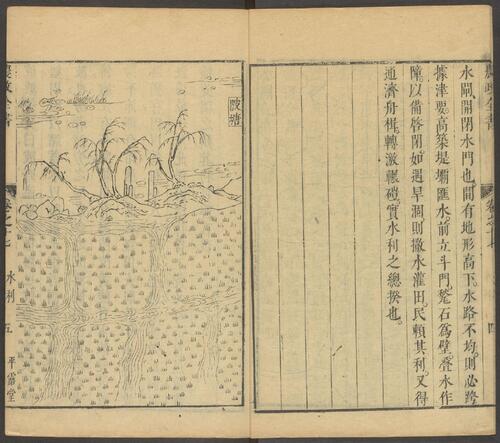 水閘開閉水門也間有地形高下水路不均則必跨
據津要高築堤壩匯水前立斗門甃石為壁疊水作
障以備啓閉如遇旱涸則撒水灌田民賴其利又得
通濟舟楫轉激輾磑實水利之總揆也
陂塘
農政全書
卷之十七
水利
五
平露堂